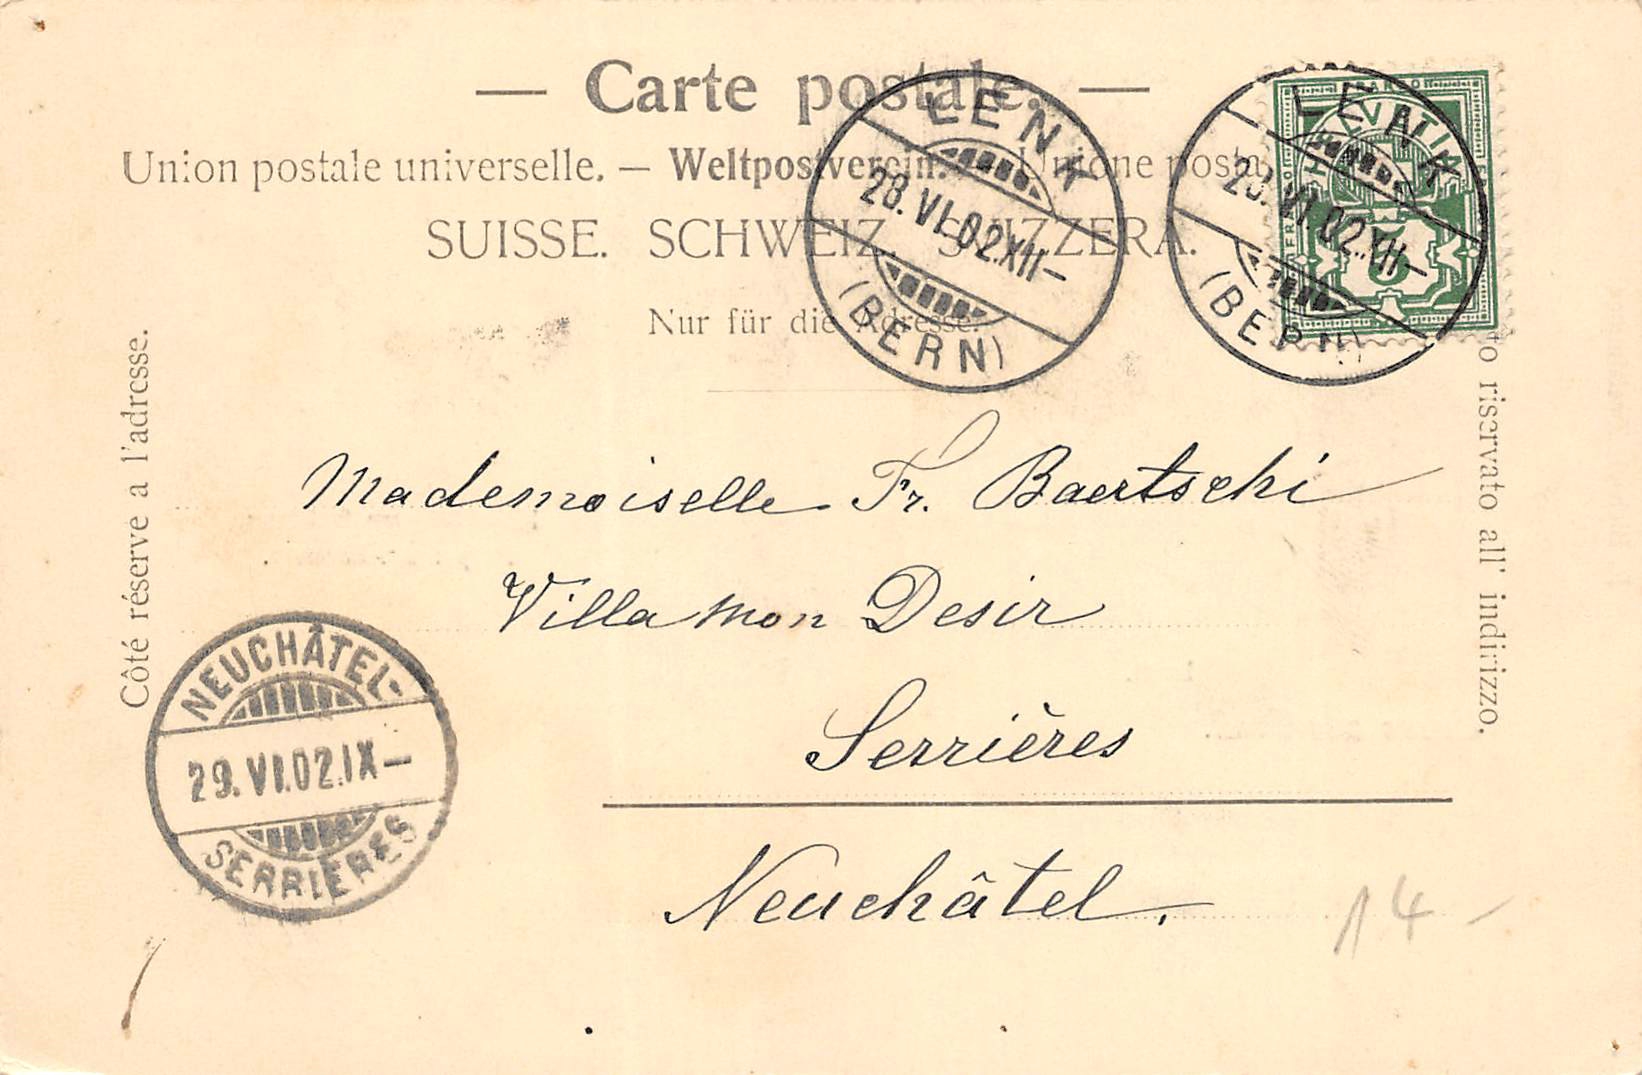 — Carte postale. —
Union postale universelle. — Weltpostverein. — Unione posta
SUISSE. SCHWEIZ. SVIZZERA.
Nur für die Adresse.
Côté réserve a l'adresse.
to riservato all' indirizzo.
LENK
28.VI.02.XII–
(BERN)
LENK
28.VI.02.XII–
(BERN)
FRANCO
HELVETIA
5
FRANCO
Mademoiselle Fr. Baertschi
Villa mon Desir
Serrières
Neuchâtel.
NEUCHÂTEL-
29.VI.02.IX–
SERRIÈRES
14 –